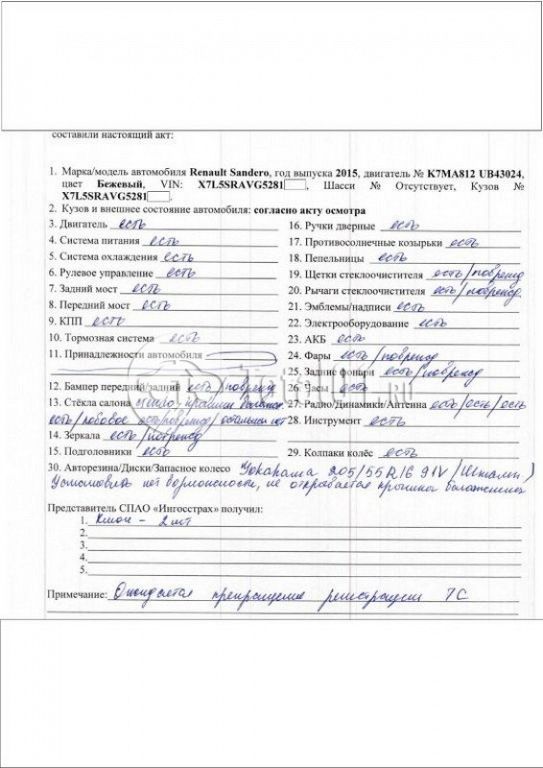 составили настоящий акт:
1. Марка/модель автомобиля Renault Sandero, год выпуска 2015, двигатель № K7MA812 UB43024,
цвет Бежевый, VIN: X7L5SRAVG5281 , Шасси № Отсутствует, Кузов №
X7L5SRAVG5281 .
2. Кузов и внешнее состояние автомобиля: согласно акту осмотра
3. Двигатель есть
4. Система питания есть
5. Система охлаждения есть
6. Рулевое управление есть
7. Задний мост есть
8. Передний мост есть
9. КПП есть
10. Тормозная система есть
11. Принадлежности автомобиля
12. Бампер передний/задний есть/поврежд
13. Стёкла салона
есть/лобовое
14. Зеркала есть/поврежд
15. Подголовники есть
16. Ручки дверные есть
17. Противосолнечные козырьки есть
18. Пепельницы есть
19. Щетки стеклоочистителя есть/поврежд
20. Рычаги стеклоочистителя есть/поврежд.
21. Эмблемы/надписи есть
22. Электрооборудование есть
23. АКБ есть
24. Фары есть/поврежд
25. Задние фонари есть/поврежд
26. Часы есть
27. Радио/Динамики/Антенна есть/есть/есть
28. Инструмент есть
29. Колпаки колёс есть
30. Авторезина/Диски/Запасное колесо Yokahama 205/55 R16 91V /Штамп/
Установить нет возможности, не открывается крышка багажника
Представитель СПАО «Ингосстрах» получил:
1. Ключ - 2 шт
2.
3.
4.
5.
Примечание: Ожидается прекращение регистрации ТС